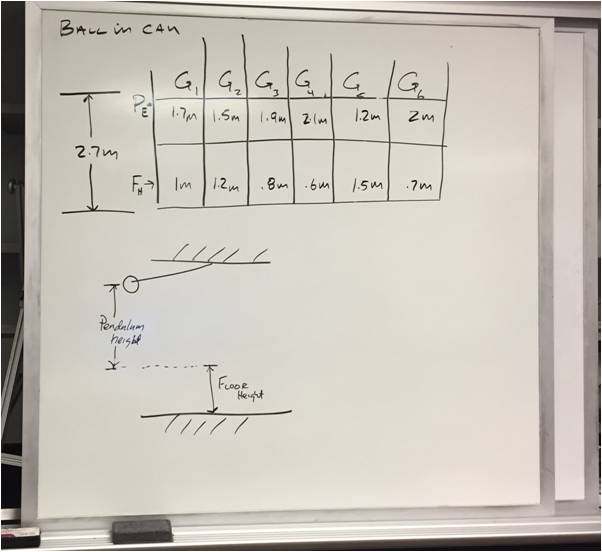 BALL IN CAN
G1 G2 G3 G4 G5 G6
PE→ 1.7m 1.5m 1.9m 2.1m 1.2m 2m
2.7m
FH→ 1m 1.2m .8m .6m 1.5m .7m
Pendulum
height
FLOOR
Height